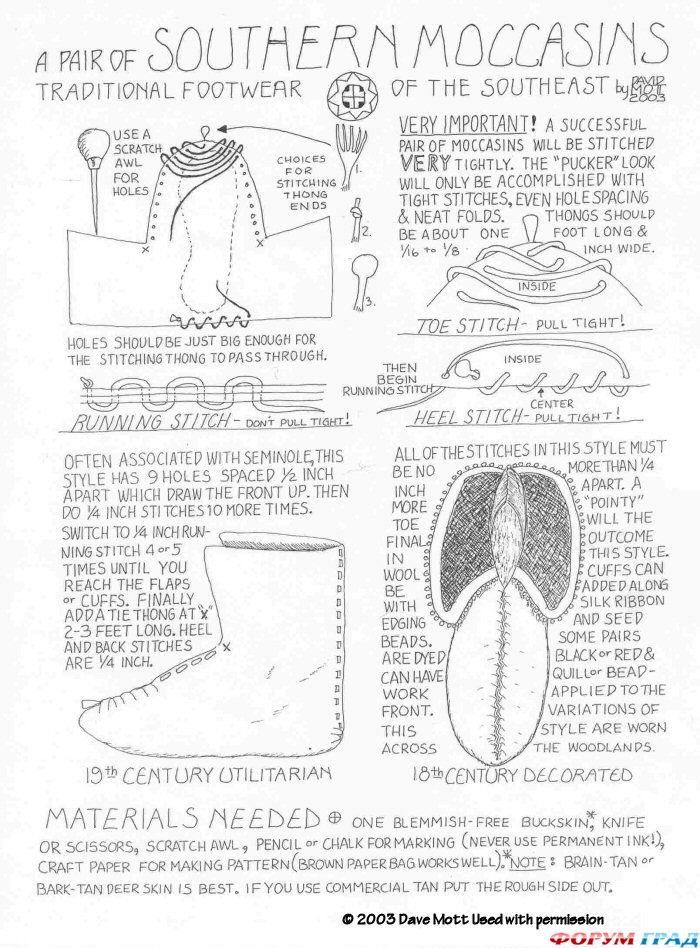 A PAIR OF SOUTHERN MOCCASINS
TRADITIONAL FOOTWEAR OF THE SOUTHEAST by DAVID MOTT 2003
USE A
SCRATCH
AWL
FOR
HOLES
CHOICES
FOR
STITCHING
THONG
ENDS
1.
2.
3.
x
x
HOLES SHOULD BE JUST BIG ENOUGH FOR
THE STITCHING THONG TO PASS THROUGH.
RUNNING STITCH - DON'T PULL TIGHT!
VERY IMPORTANT! A SUCCESSFUL
PAIR OF MOCCASINS WILL BE STITCHED
VERY TIGHTLY. THE "PUCKER" LOOK
WILL ONLY BE ACCOMPLISHED WITH
TIGHT STITCHES, EVEN HOLE SPACING
& NEAT FOLDS. THONGS SHOULD
BE ABOUT ONE FOOT LONG &
1/16 to 1/8 INCH WIDE.
INSIDE
TOE STITCH - PULL TIGHT!
THEN
BEGIN
RUNNING STITCH
INSIDE
CENTER
HEEL STITCH - PULL TIGHT!
OFTEN ASSOCIATED WITH SEMINOLE, THIS
STYLE HAS 9 HOLES SPACED 1/2 INCH
APART WHICH DRAW THE FRONT UP. THEN
DO 1/4 INCH STITCHES 10 MORE TIMES.
SWITCH TO 1/4 INCH RUN-
NING STITCH 4 or 5
TIMES UNTIL YOU
REACH THE FLAPS
or CUFFS. FINALLY
ADD A TIE THONG AT "X"
2-3 FEET LONG. HEEL
AND BACK STITCHES
ARE 1/4 INCH.
x
19th CENTURY UTILITARIAN
ALL OF THE STITCHES IN THIS STYLE MUST
BE NO MORE THAN 1/4
INCH APART. A
MORE "POINTY"
TOE WILL THE
FINAL OUTCOME
IN THIS STYLE.
WOOL CUFFS CAN
BE ADDED ALONG
WITH SILK RIBBON
EDGING AND SEED
BEADS. SOME PAIRS
ARE DYED BLACK or RED &
CAN HAVE QUILL or BEAD-
WORK APPLIED TO THE
FRONT. VARIATIONS OF
THIS STYLE ARE WORN
ACROSS THE WOODLANDS.
18th CENTURY DECORATED
MATERIALS NEEDED ⊕ ONE BLEMMISH-FREE BUCKSKIN*, KNIFE
OR SCISSORS, SCRATCH AWL, PENCIL or CHALK FOR MARKING (NEVER USE PERMANENT INK!),
CRAFT PAPER FOR MAKING PATTERN (BROWN PAPER BAG WORKS WELL). *NOTE: BRAIN-TAN or
BARK-TAN DEER SKIN IS BEST. IF YOU USE COMMERCIAL TAN PUT THE ROUGH SIDE OUT.
© 2003 Dave Mott Used with permission
ФОРУМ ГРАД